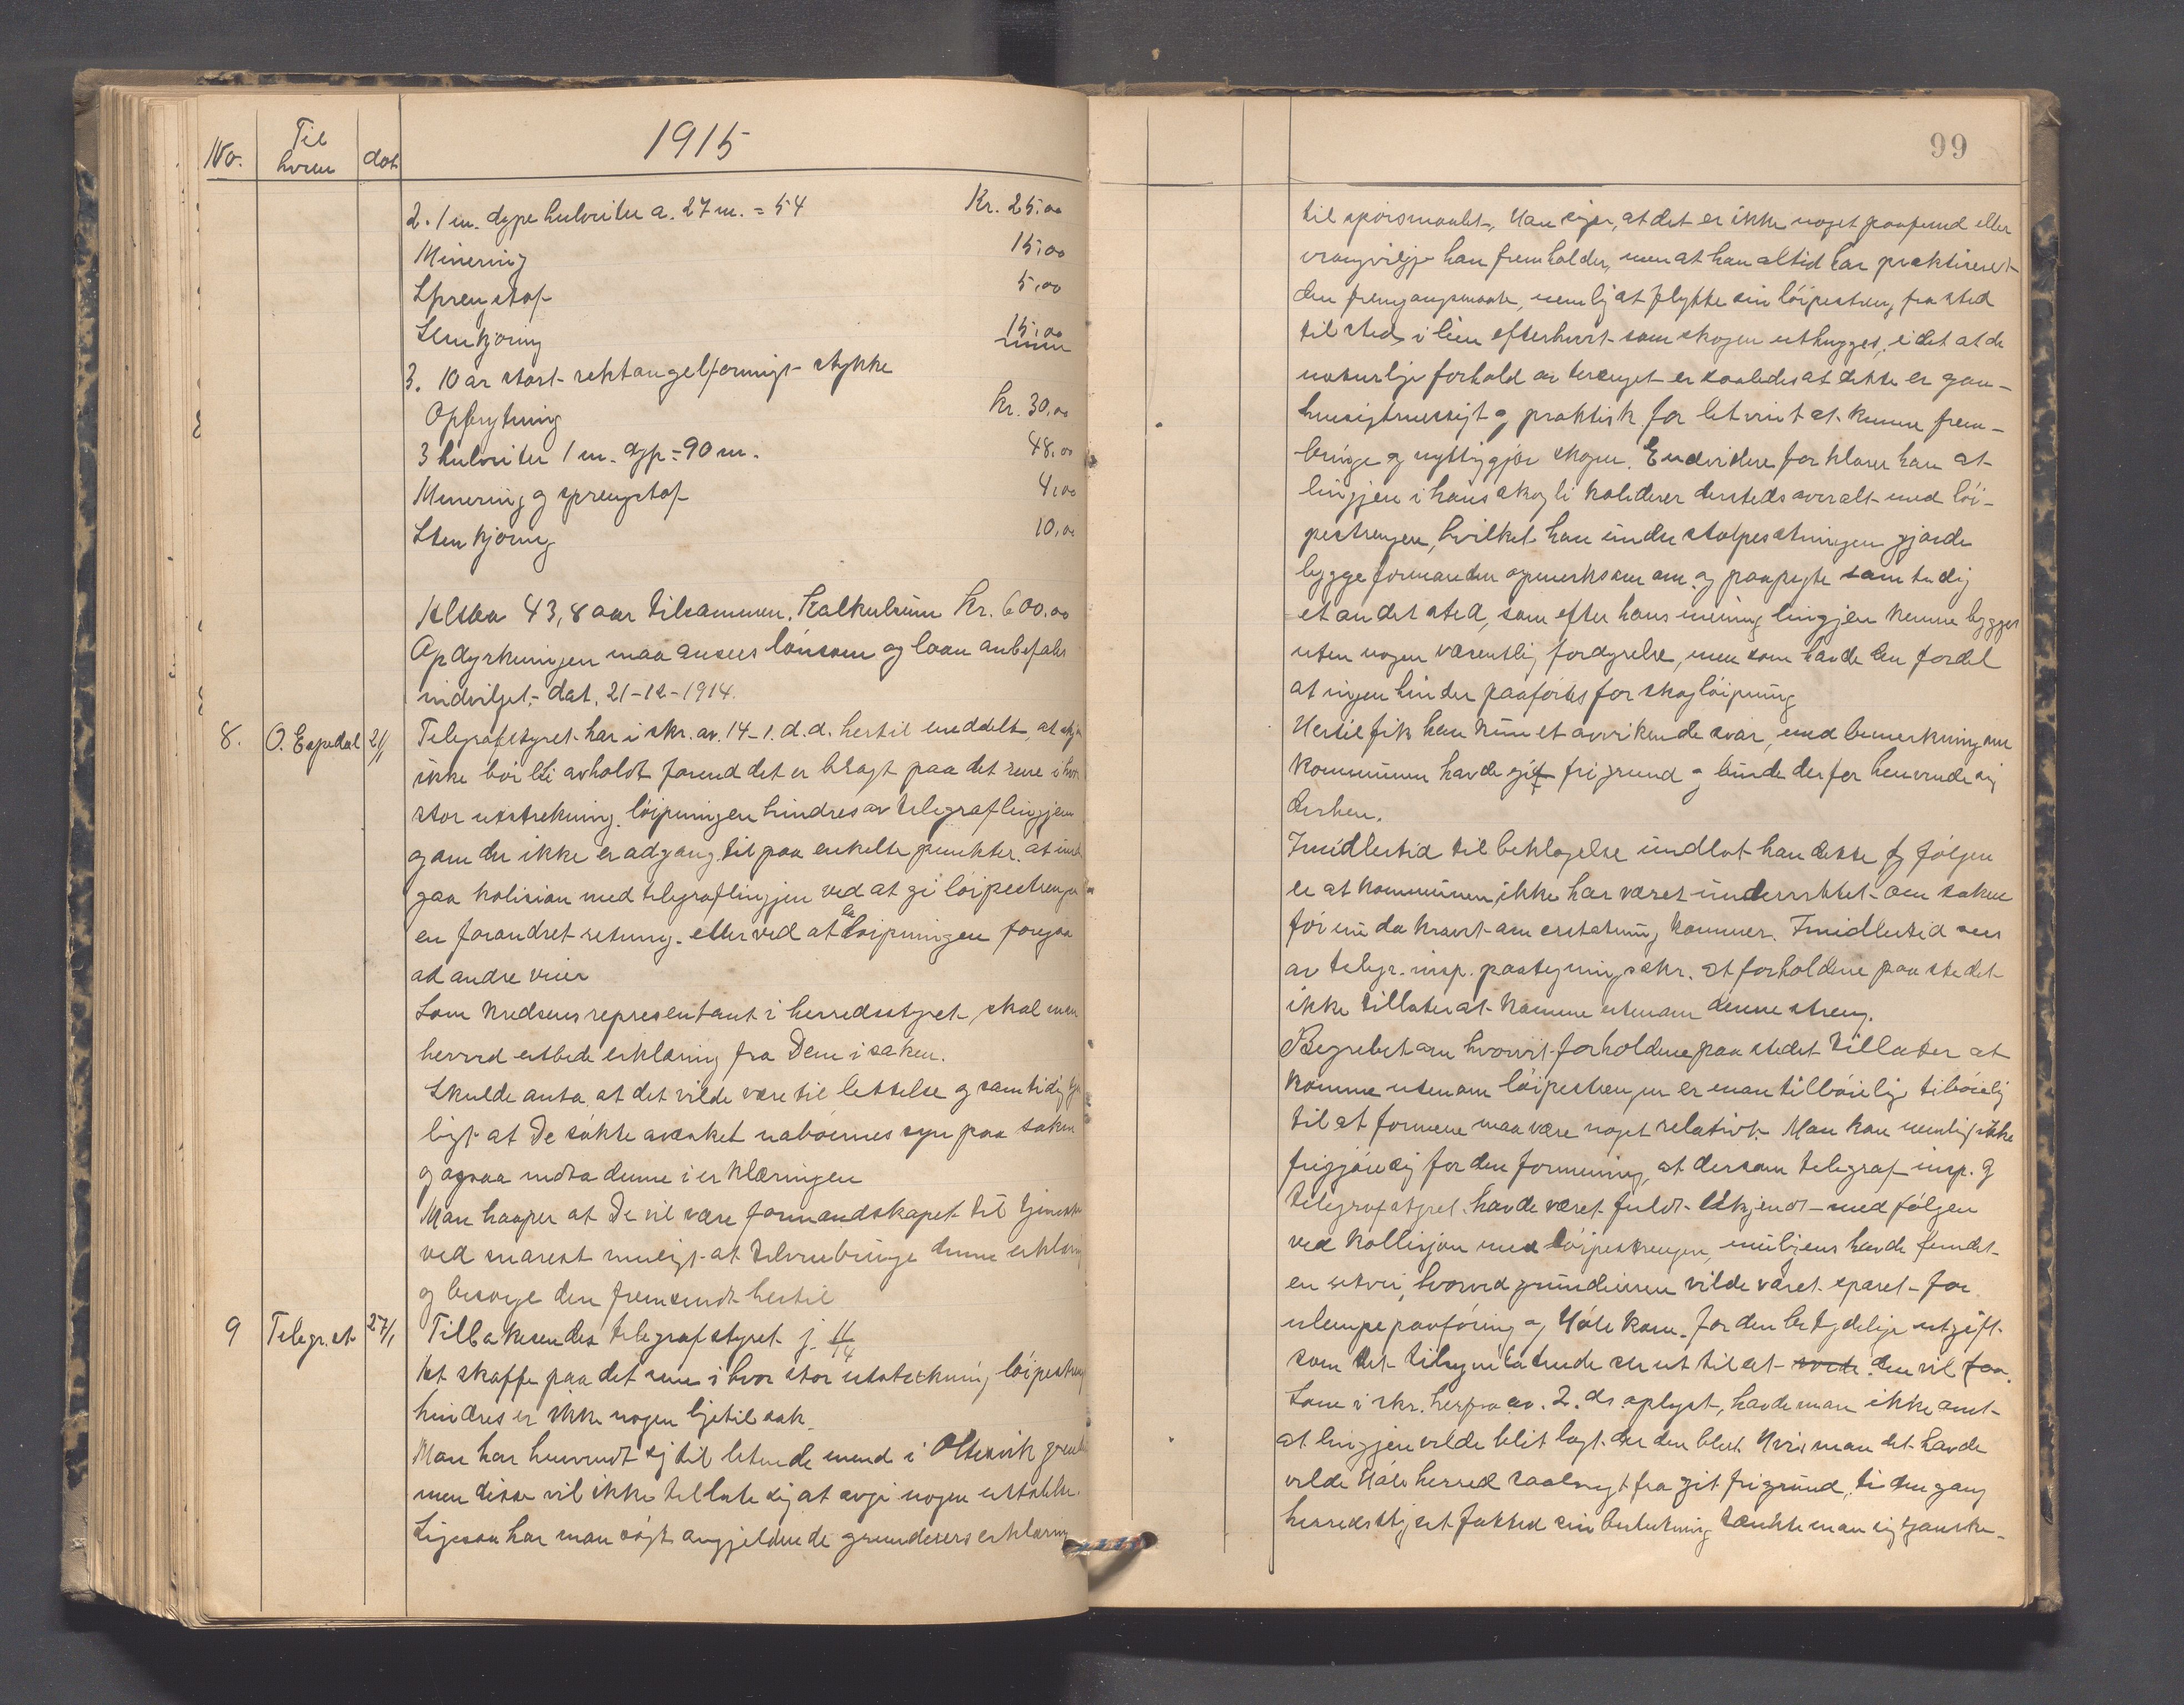 No. Til hvem dat. 1915
2. 1 m. dype hulveiter a. 27 m. = 54 Kr. 25,00
Minering 15,00
Sprengstof 5,00
Stenkjøring 15,00
3. 10 ar stort rektangelformigt stykke
Opbrytning Kr. 30,00
3 hulveiter 1 m. dyp = 90 m. 48,00
Minering og sprengstof 4,00
Stenkjøring 10,00
Altsaa 43,8 aar tilsammen. Kalkulsum Kr. 600,00
Opdyrkningen maa ansees lønsom og laan anbefales
indvilget. dat. 21-12-1914.
8. O. Espedal 21/1 Telegrafstyret har i skr. av. 14-1. d.d. hertil meddelt, at skjøn
ikke bør bli avholdt forend det er bragt paa det rene i hvor
stor utstrekning løipningen hindres av telegraflingjen
og om der ikke er adgang til paa enkelte punkter at und
gaa kolision med telegraflingjen ved at gi løipestrengen
en forandret retning. eller ved at la løipningen foregaa
ad andre veier
Som kredsens representant i herredsstyret, skal man
herved utbede erklæring fra Dem i saken.
Skulde anta at det vilde være til lettelse og samtidig
ligt at De søkte avæsket naboernes syn paa saken
og ogsaa indta denne i erklæringen
Man haaper at De vil være formandskapet til tjeneste
ved snarest muligt at tilveiebringe denne erklæring
og besørge den fremsendt hertil
9 Telegr.st. 27/1 Tilbakesendes telegrafstyret j. 11/14
At skaffe paa det rene i hvor stor utstrekning løipestreng
hindres er ikke nogen liketil sak.
Man har henvendt sig til letende mend i Oltesvik grend
men disse vil ikke tillate sig at avgi nogen uttalelse.
Ligesaa har man søgt angjeldende grundeiers erklæring
99
til spørsmaalet. Han siger, at det er ikke noget paafund eller
vrangvilje han fremholder, men at han altid har praktiseret
den fremgangsmaate, nemlig at flytte sin løipestreng fra sted
til sted i lien efterhvert som skogen uthugges, idet at de
naturlige forhold av terænget er saaledes at dette er gan-
hensigtmessigt og praktisk for letvint at kunne frem-
bringe og nyttiggjøre skogen. Endvidere forklarer han at
lingjen i hans skogli koliderer dersteds overalt med løi-
pestrengen, hvilket han under stolpesetningen gjorde
byggeformanden opmerksom om og paapegte samtidig
et andet sted, som efter hans mening lingjen kunne bygges
uten nogen væsentlig fordyrelse, men som havde den fordel
at ingen hinder paaførtes for skogløipning
Hertil fik han kun et avvikende svar, med bemerkning om
kommunen havde git fri grund og burde derfor henvende sig
derhen.
Imidlertid til beklagelse undlot han dette og følgen
er at kommunen ikke har været underrettet om saken
før nu da kravet om erstatning kommer. Imidlertid sees
av telegr. insp. paategningsskr. at forholdene paa stedet
ikke tillater at komme utenom denne streng.
Begrebet om hvorvit forholdene paa stedet tillater at
komme utenom løipestrengen er man tilbøielig tilbøielig
til at formene maa være noget relativt. Man kan nemlig ikke
frigjøre sig for den formening, at dersom telegraf insp. og
telegrafstyret havde været fuldt utkjendt med følgen
ved kollisjon med løipestrengen, muligens havde fundet
en utvei, hvorved grundeieren vilde været sparet for
ulempepaaføring og Høle kom. for den betydelige utgift
som det tilsyneladende ser ut til at den vil faa.
Som i skr. herfra av. 2. ds. oplyst, havde man ikke anet
at lingjen vilde blit lagt der den blev. Hvis man det havde
vilde Høle herred saalangt fra git frigrund, ti den gang
herredsstyret fattet sin beslutning tænkte man sig ganske